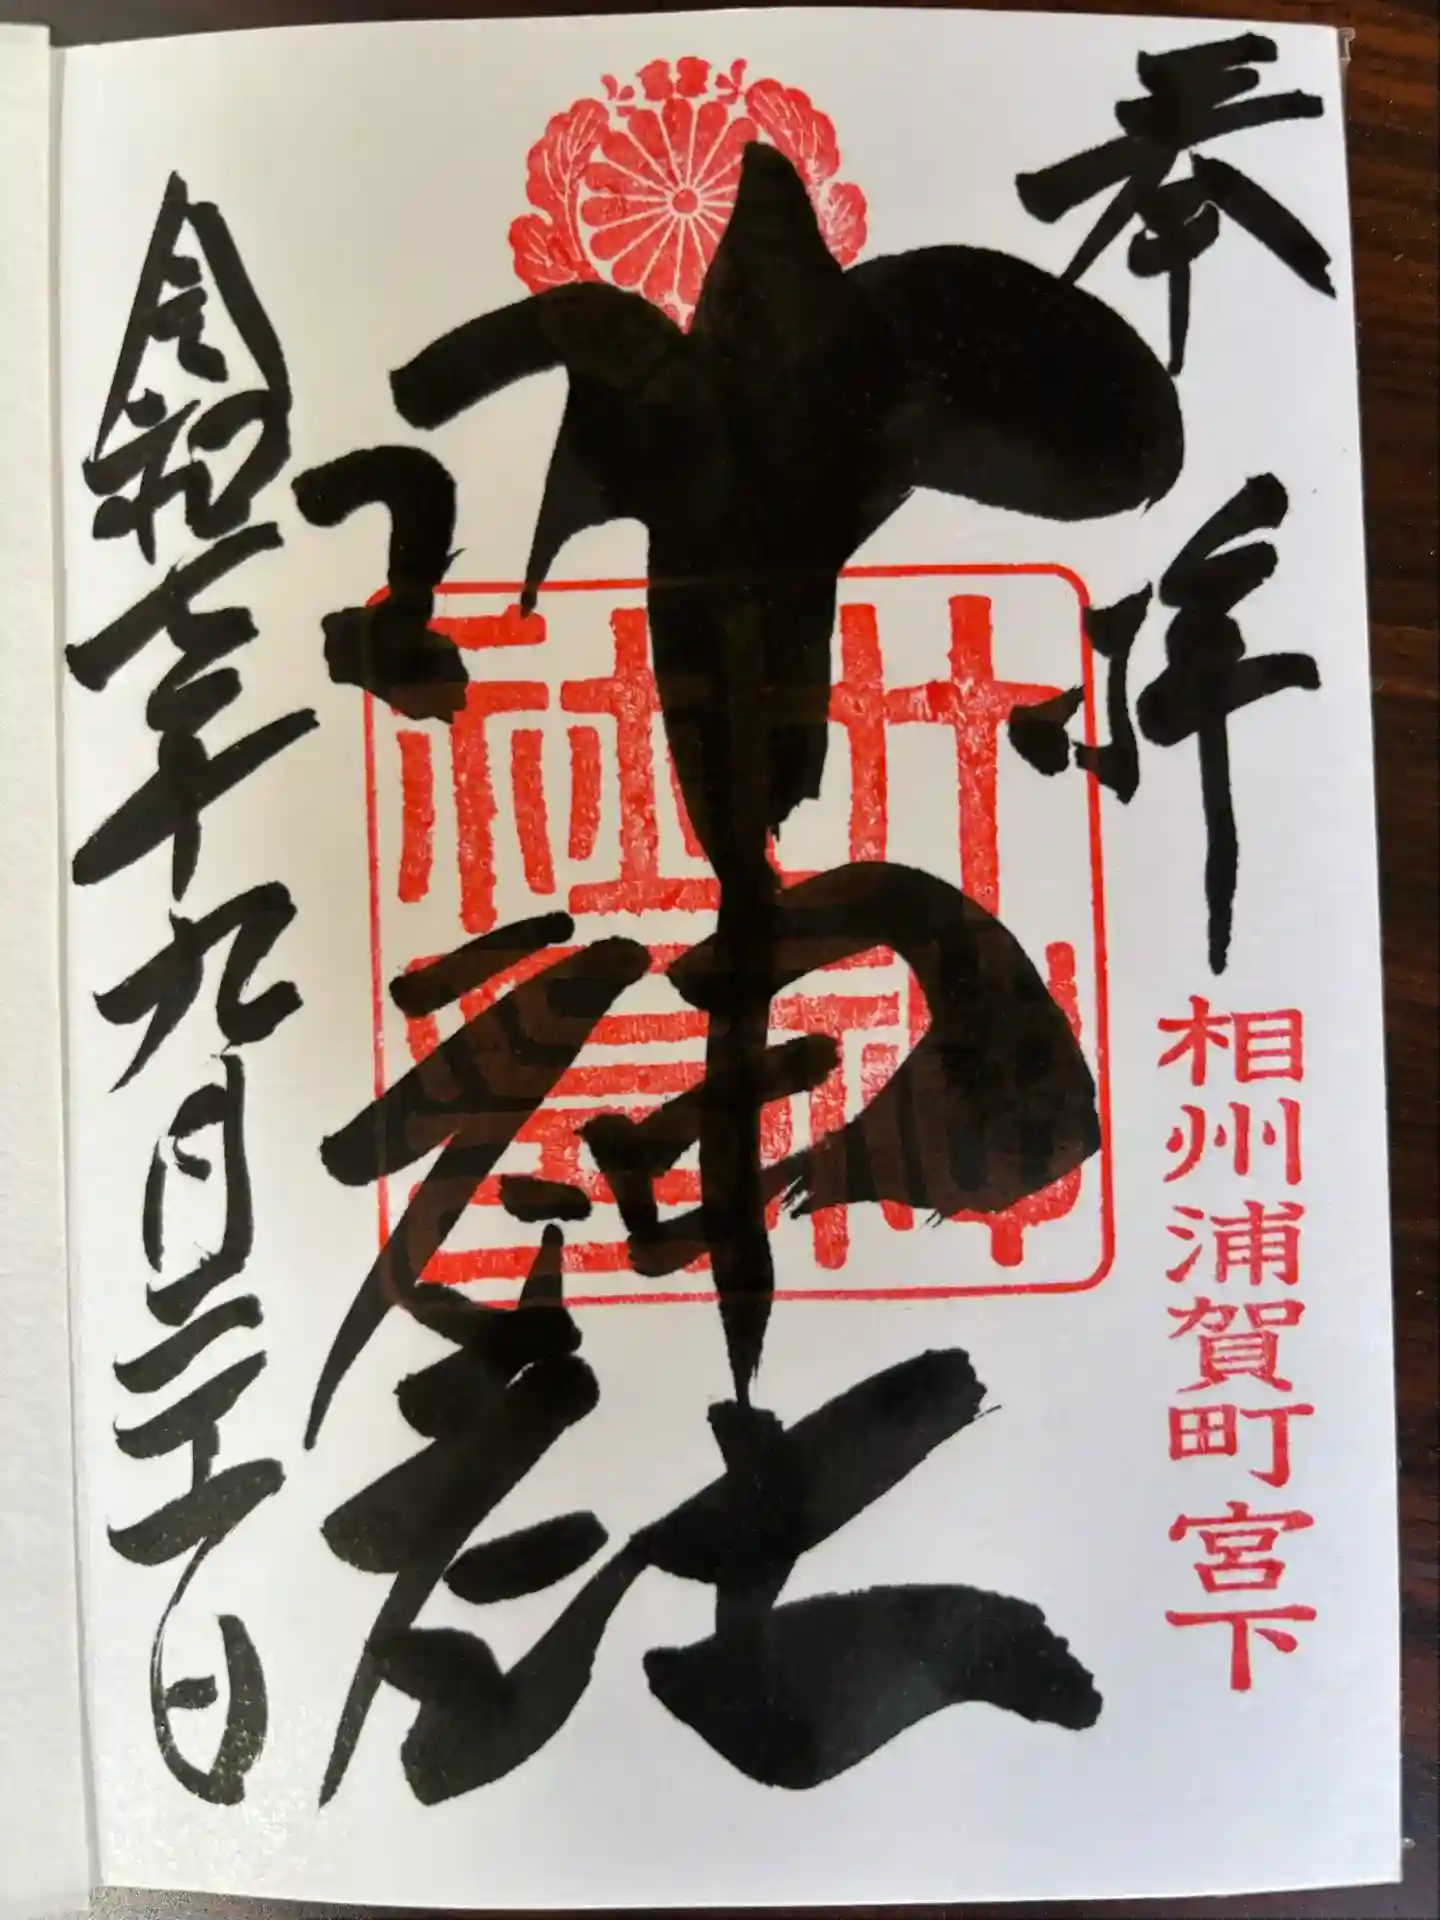 奉拝
相州浦賀町宮下
叶神社
叶神
社璽
令和七年九月二十一日